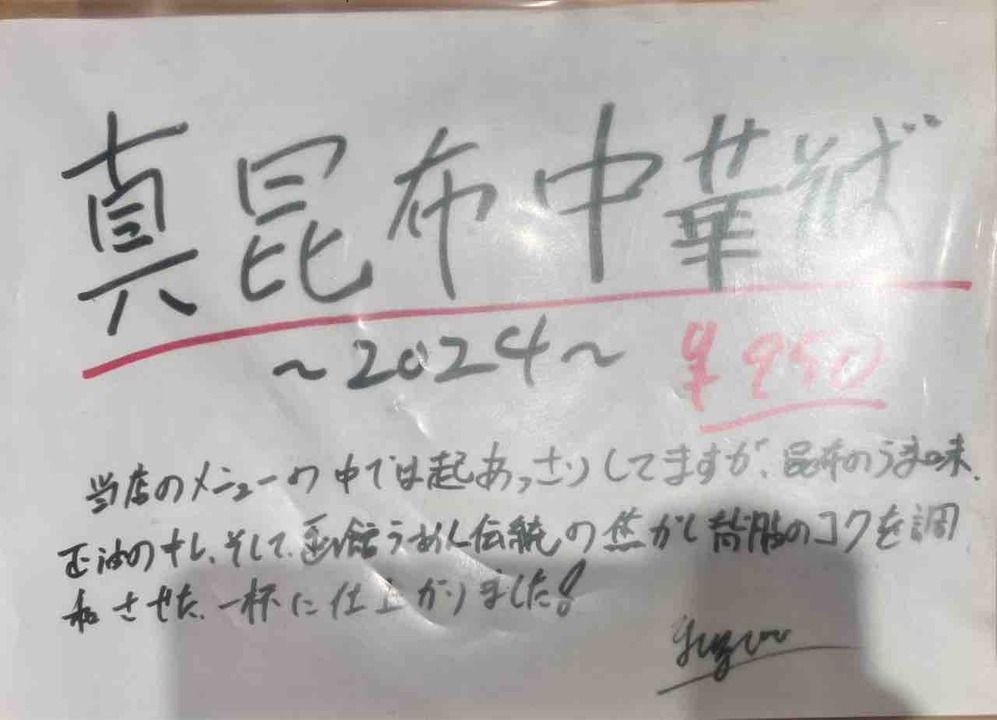 真昆布中華そば
~2024~
¥950
当店のメニューの中では超あっさりしてますが、昆布のうま味、
正油のキレ、そして、伝統の焦がし背脂のコクを調
和させた、一杯に仕上がりました!